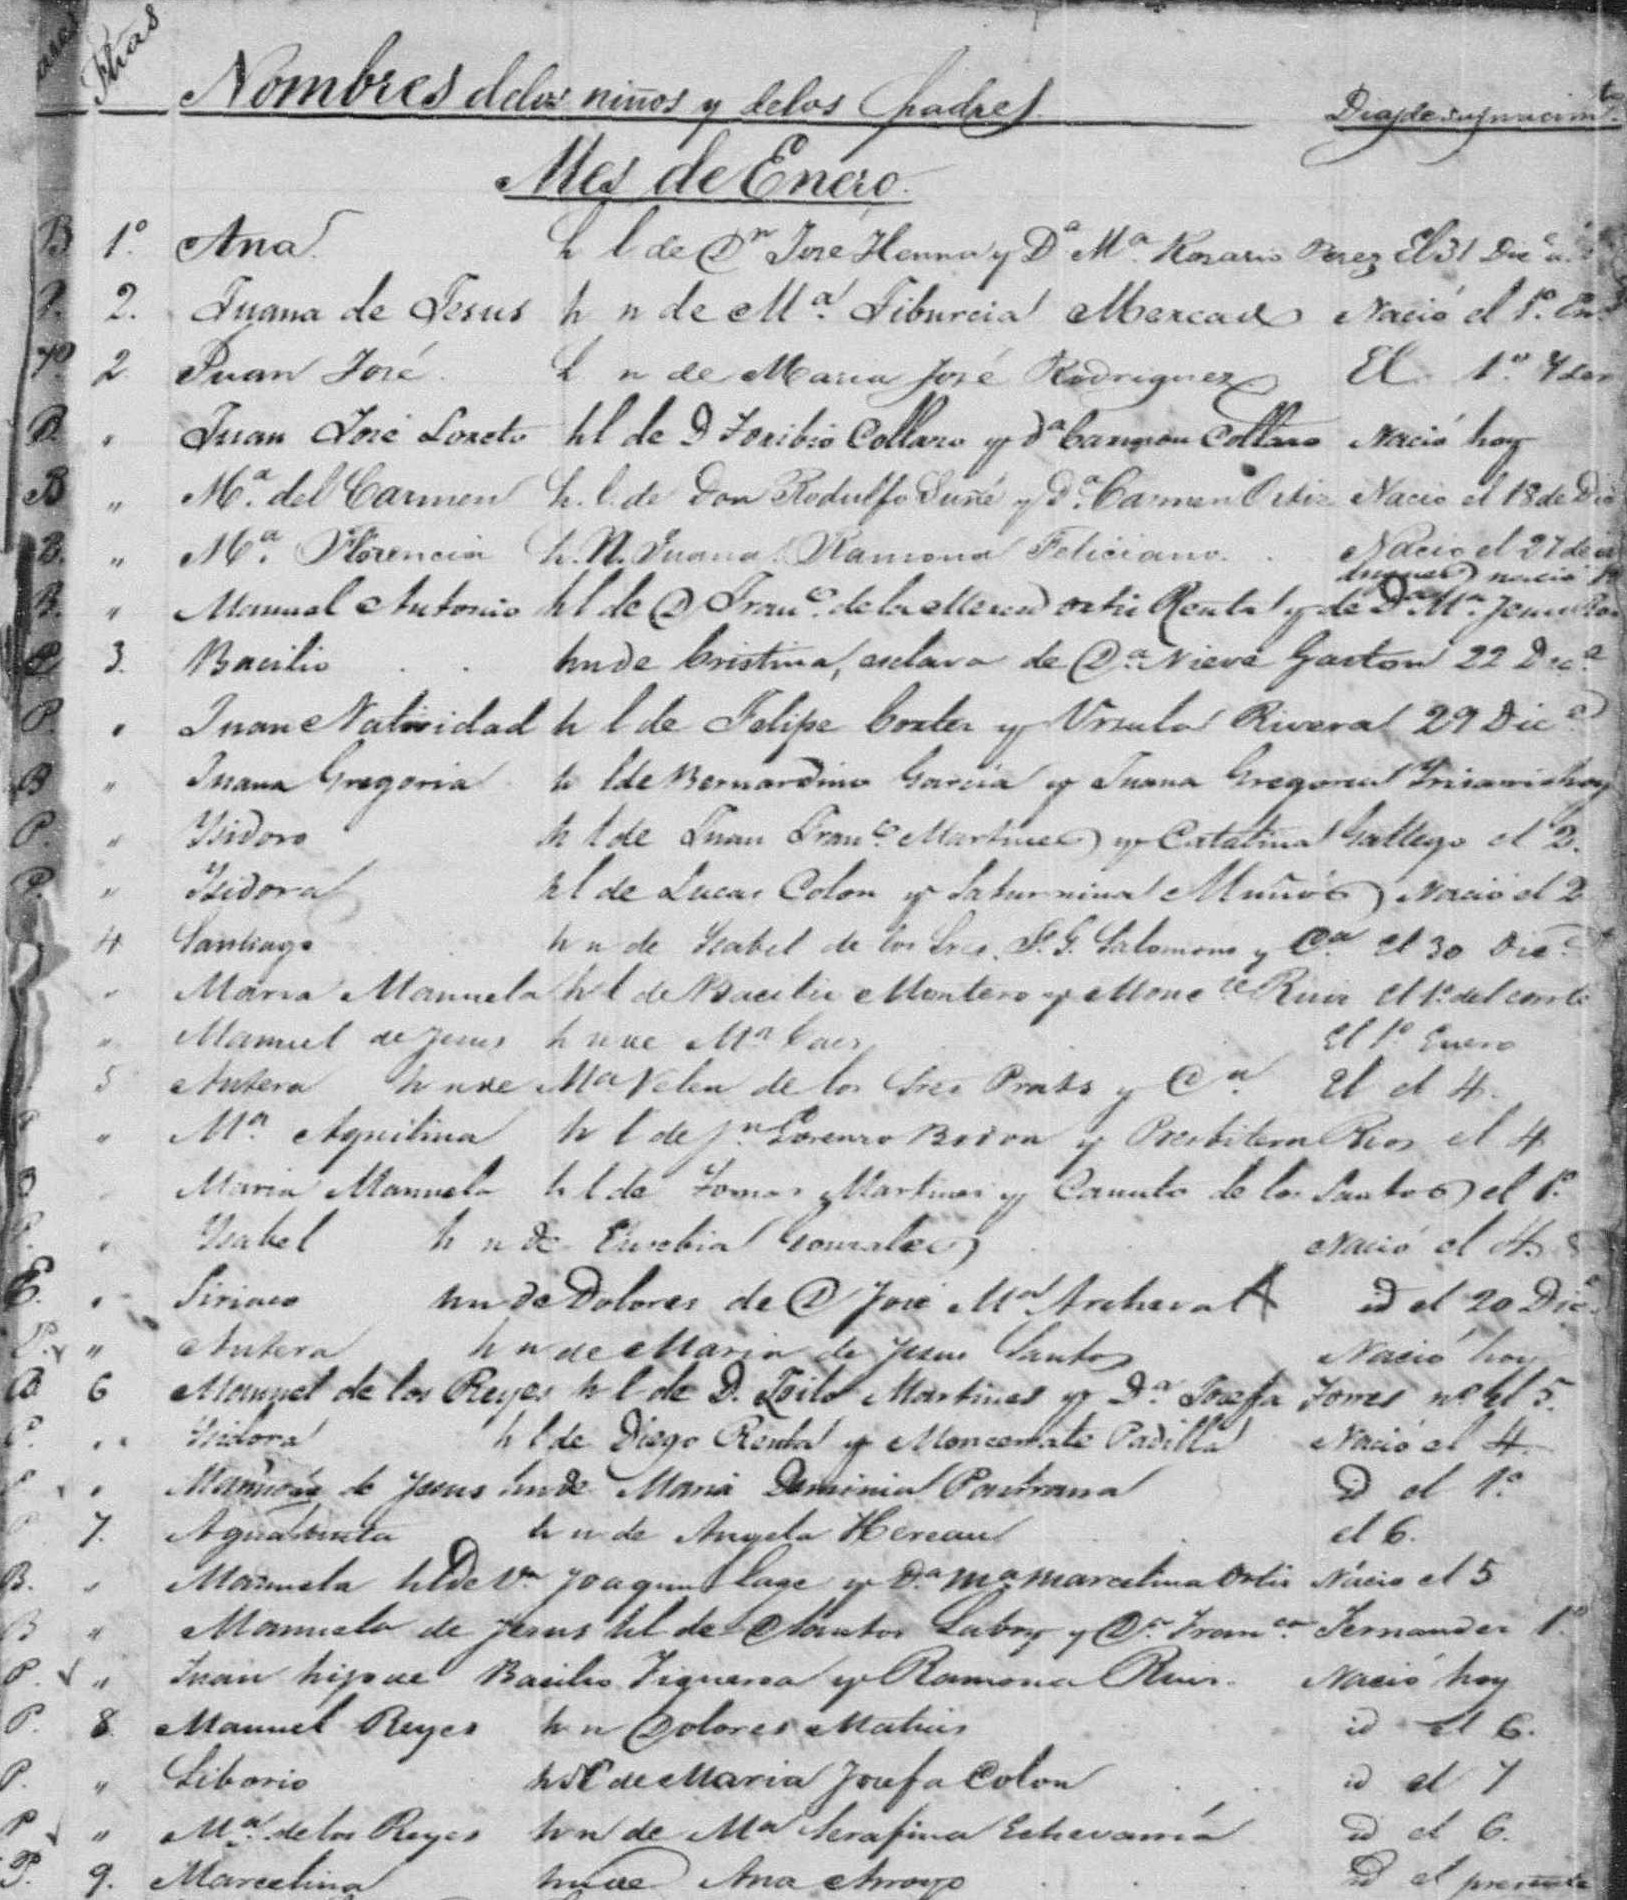 Fhas
Nombres de los niños y de los Padres Dias de su nacimto
Mes de Enero.
B 1º Ana h l de Dn José Henna y Dª Mª Rosario Perez El 31 Dice
P. 2. Juana de Jesus h n de Mª Tiburcia Mercado Nació el 1º En
P 2 Juan José h n de Maria José Rodriguez El 1º
P. " Juan José Loreto h l de D Toribio Collazo y Dª Carmen Collazo Nació hoy
B " Mª del Carmen h. l. de Don Rodulfo Suñé y Dª Carmen Ortiz Nació el 18 de Dic
B. " Mª Florencia h. N. Juana Ramona Feliciano. Nació el 27 de
nació
B. " Manuel Antonio h l de D Franco de la Merced Ortiz Renta y de Dª Mª Jesus
E 3. Bacilio h n de Cristina, esclava de Dª Nieve Gaston 22 Dice
P. " Juan Natividad h l de Felipe Cortes y Ursula Rivera 29 Dice
B " Juana Gregoria h l de Bernardino Garcia y Juana Gregoria Irisarri hoy
P. " Ysidoro h l de Juan Franco Martinez y Catalina Gallego el 2.
P. " Ysidora h l de Lucas Colon y Saturnina Muños Nació el 2
4 Santiago h n de Ysabel de los Sres. F. G. Salomons y Cª El 30 Dice
" Maria Manuela h l de Bacilio Montero y Monce Ruiz El 1º del corrte
" Manuel de Jesus h n de Mª El 1º Enero
5 Antera h n de Mª Velen de los Sres Prats y Cª El el 4.
" Mª Aquilina h l de Jn Lorenzo y Presbitera Rios el 4
B " Maria Manuela h l de Tomas Martines y Canuta de los Santos el 1º
P. " Ysabel h n de Eusebia Gonzales Nació el 4.
E. " Siriaco h n de Dolores de D José Mª Archeval id el 20 Dice
P. " Antera h n de Maria de Jesus Santos Nació hoy
B 6 Manuel de los Reyes h l de D. Zoilo Martines y Dª Josefa Torres nº el 5.
P. " Ysidora h l de Diego Renta y Moncerrate Padilla Nació el 4.
P " de Jesus h n de Maria Pastrana id el 1º
P 7. h n de Angela Hereau el 6.
B. " Manuela h l de Dn Joaquin Lage y Dª Mª Marcelina Ortis Nació el 5
B " Manuela de Jesus h l de Santos y Dª Franca Fernandez 1º
P. " Juan hijo de Basilio Figueroa y Ramona Ruis. Nació hoy
P. 8 Manuel Reyes h n Dolores Matias id el 6.
P. " Liborio h n de Maria Josefa Colon id el 7
P " Mª de los Reyes h n de Mª Serafina Echevarría id el 6.
P. 9. Marcelina h n de Ana Arroyo id el presente